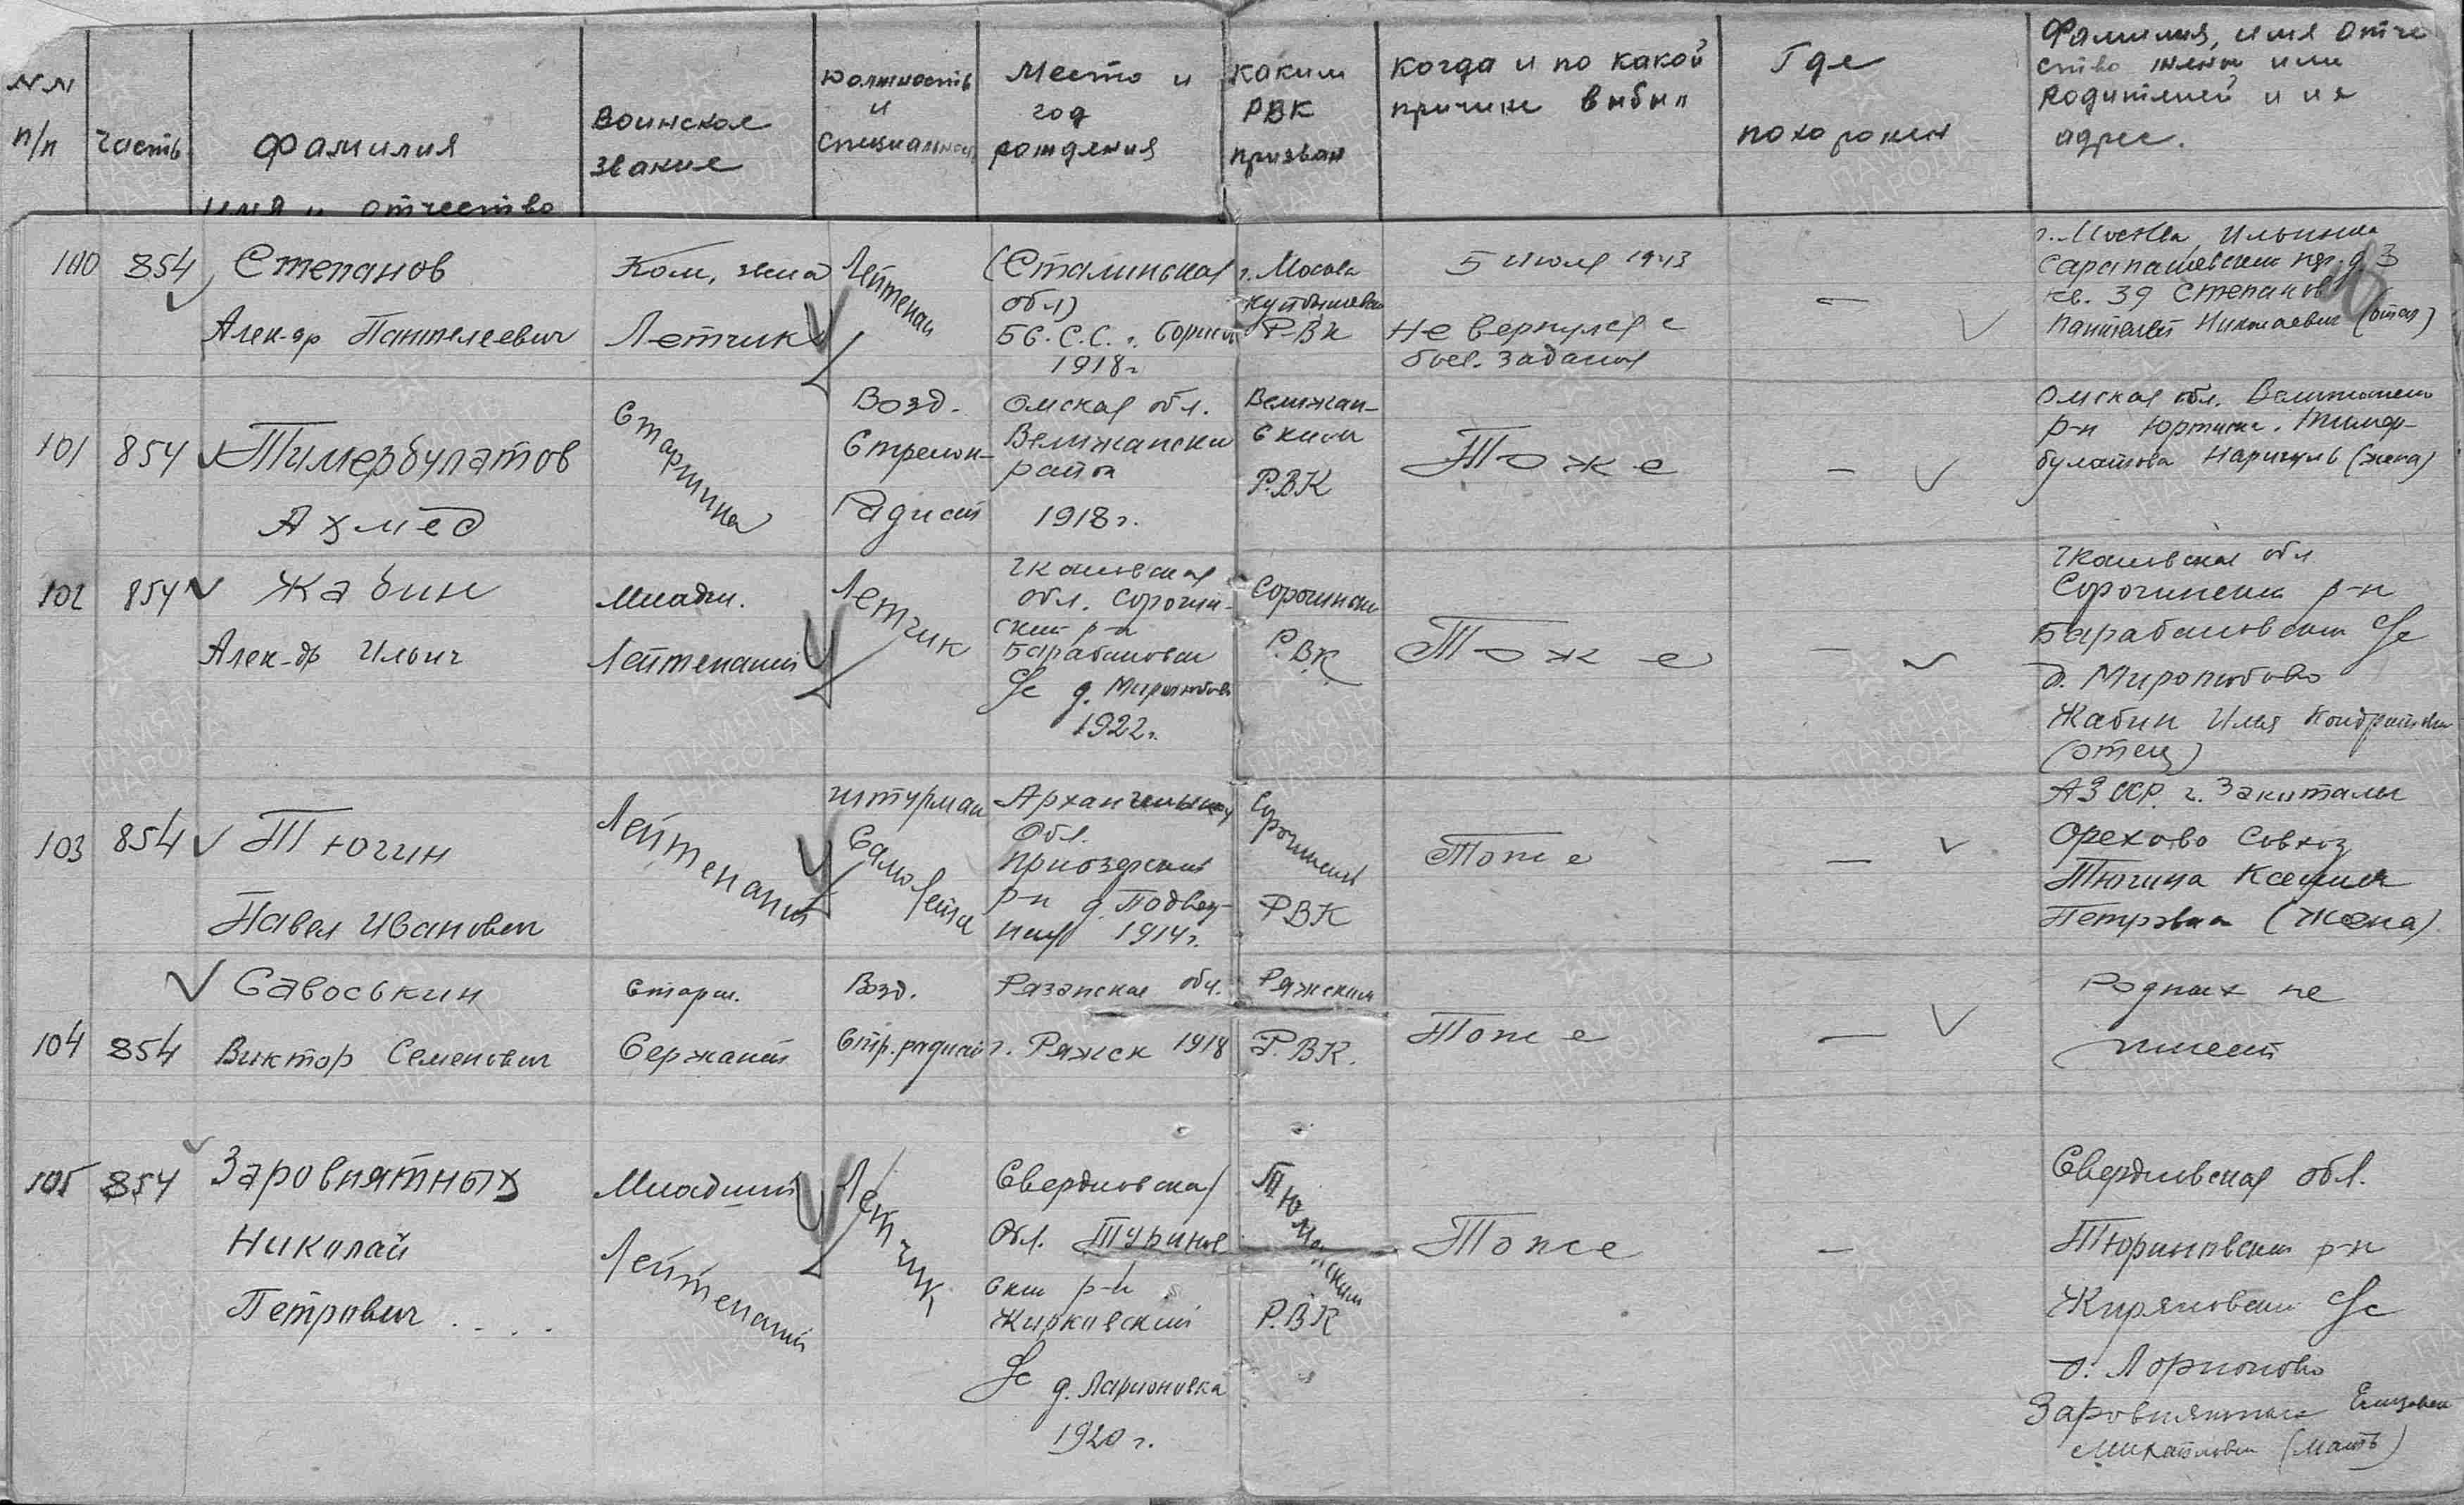 NN
п/п
часть
фамилия
имя и отчество
Воинское
звание
должность
и
специальност
Место и
год
рождения
каким
РВК
призван
когда и по какой
причине выбыл
Где
похоронен
Фамилия, имя отче
ство жены или
родителей и их
адрес.
100
854
Степанов
Алек-др Пантелеевич
Ком, звена
Летчик
Лейтенан
(Сталинская
обл)
1918г
г. Москва
Куйбышевск
Р-ВК
5 июля 1943
Не вернулся с
боев. задания
—
г. Москва, Ильинка
пер. д 3
кв. 39 Степанов
Пантелей Николаевич (отец)
101
854
Тимербулатов
Ахмед
Старшина
Возд.
Стрелок-
Радист
Омская обл.
Велижански
район
1918г.
Велижан-
ским
Р.ВК
Тоже
—
Омская обл. Велижанск
р-н Юртинск. Тимер-
булатова (жена)
102
854
Жабин
Алек-др Ильич
Младш.
Лейтенант
Летчик
Чкаловская
обл. Сорочин-
ский р-н
Барабановск
с/с д. Миролюбов
1922г.
Сорочински
Р.ВК
Тоже
—
Чкаловская обл
Сорочинский р-н
Барабановский с/с
д. Миролюбово
Жабин Илья Кондратьеви
(отец)
103
854
Тюгин
Павел Иванович
Лейтенант
штурман
Самолета
Архангельск
Обл.
Приозерский
р-н д. Подвез-
1914г.
Сорочинский
РВК
Тоже
—
АЗ ССР. г. Закаталы
Орехово Совхоз
Тюгина Ксения
Петровна (жена)
104
854
Савоськин
Виктор Семенович
Старш.
Сержант
Возд.
Стр. радист
Рязанская обл.
г. Ряжск 1918
Ряжским
Р.ВК.
Тоже
—
Родных не
имеет
105
854
Заровнятных
Николай
Петрович . . . .
Младший
Лейтенант
Летчик
Свердловская
Обл. Туринс
кий р-н
Жирковский
с/с д. Ларионовка
1920г.
Тюменским
Р.ВК
Тоже
—
Свердловская обл.
Тюриновский р-н
Жиряковский с/с
д. Ларионово
Заровнятных Елизавет
Михайловн (мать)